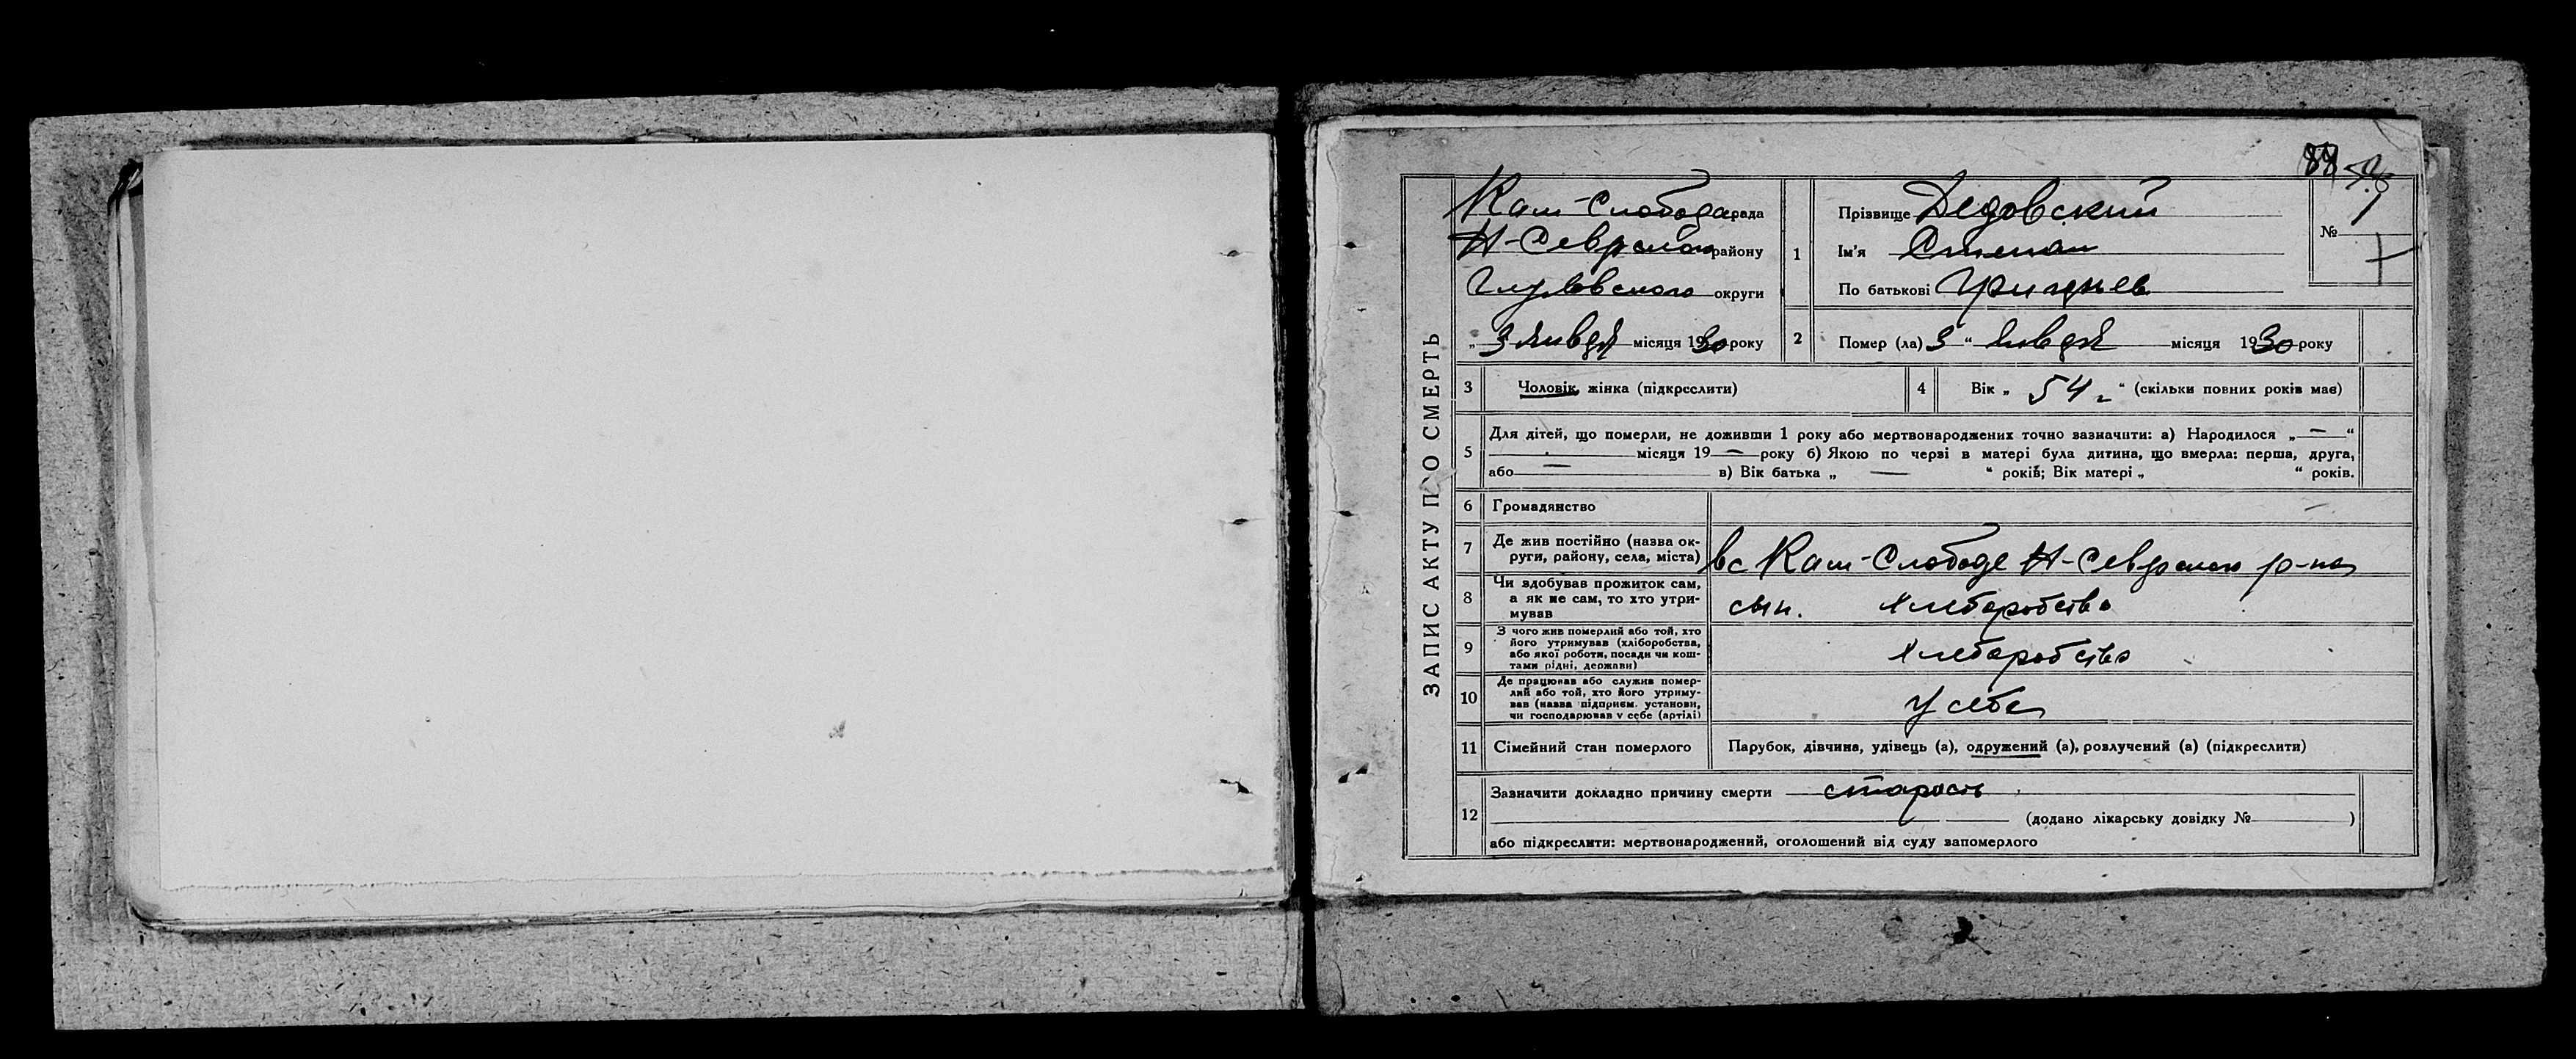 ЗАПИС АКТУ ПРО СМЕРТЬ
Кам-Слобода рада
Н-Севрского району
Глуховского округи
„ 3 Янвдя місяця 1930 року
1
Прізвище Дедовский
Ім'я Степан
По батькові
№ 1
2
Помер (ла) 3 “ Янвдя місяця 1930 року
3 Чоловік, жінка (підкреслити)
4 Вік „ 54 “ (скільки повних років має)
5
Для дітей, що померли, не доживши 1 року або мертвонароджених точно зазначити: а) Народилося „ — “
місяця 19 — року б) Якою по черзі в матері була дитина, що вмерла: перша, друга,
або — в) Вік батька „ — “ років; Вік матері „ “ років.
6 Громадянство —
7 Де жив постійно (назва ок-
руги, району, села, міста)
вс Кам-Слободе Н-Севрского р-на
8 Чи здобував прожиток сам,
а як не сам, то хто утри-
мував
сын. Хлеборобство
9 З чого жив померлий або той, хто
його утримував (хліборобства,
або якої роботи, посади чи кош-
тами рідні, держави)
Хлеборобство
10 Де працював або служив помер-
лий або той, хто його утриму-
вав (назва підприєм. установи,
чи господарював у себе (артілі)
У себе
11 Сімейний стан померлого
Парубок, дівчина, удівець (а), одружений (а), розлучений (а) (підкреслити)
12
Зазначити докладно причину смерти старость
(додано лікарську довідку № )
або підкреслити: мертвонароджений, оголошений від суду запомерлого